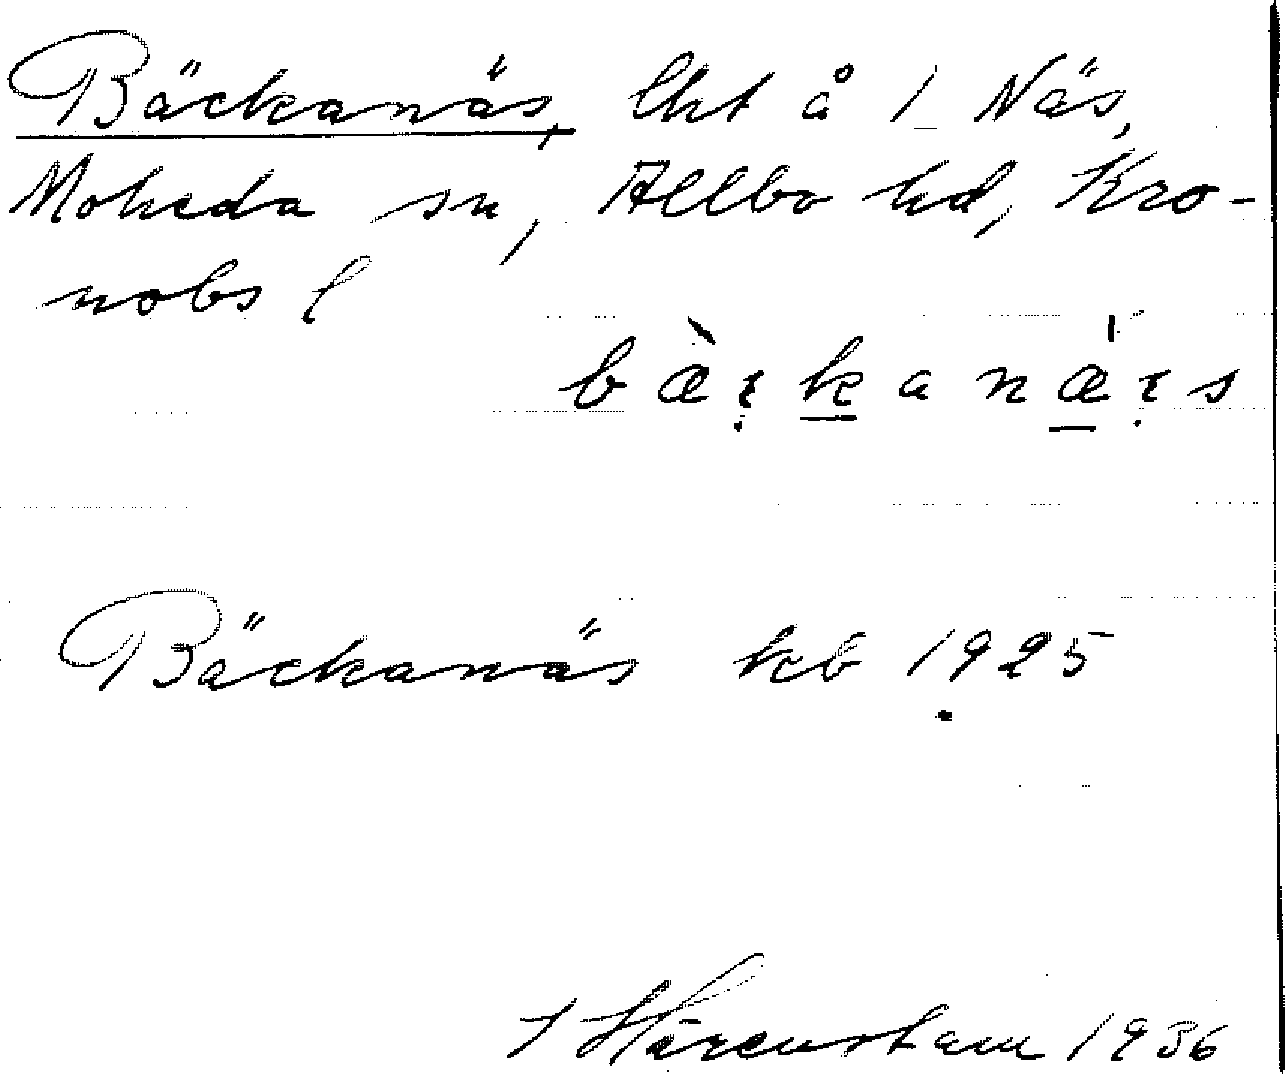 Bäckanäs, lht å 1 Näs,
Moheda sn, Allbo hd, Kro-
nobs l
bæ̀ꞔkanǽꞔs
Bäckanäs kb 1925
J Härenstam 1936